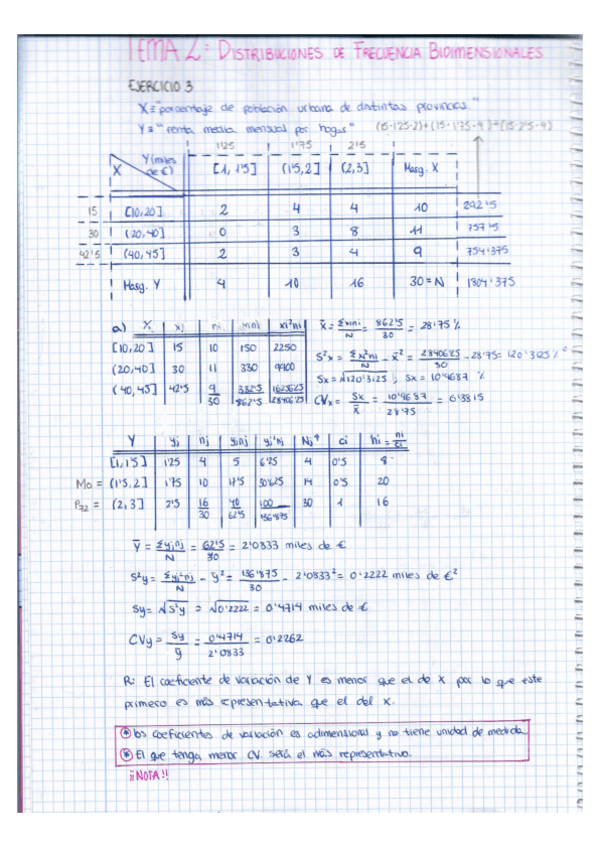 TEMA 2: DISTRIBUCIONES DE FRECUENCIA BIDIMENSIONALES
EJERCICIO 3
X="porcentaje de población urbana de distintas provincias."
Y="renta media mensual por hogar" (15·1'25·2)+(15·1'75·4)+(15·2'5·4)
1'25 1'75 2'5
X Y(miles de €) [1, 1'5] (1'5,2] (2,3] Marg. X
15 [10,20] 2 4 4 10 292'5
30 (20,40] 0 3 8 11 757'5
42'5 (40,45] 2 3 4 9 754'375
Marg. Y 4 10 16 30=N 1804'375
a) X xi ni xini xi²ni x̄ = Σxini/N = 862'5/30 = 28'75 %
[10,20] 15 10 150 2250
(20,40] 30 11 330 9900 S²x = Σxi²ni/N - x̄² = 28406'25/30 - 28'75 = 120'3125 %²
(40,45] 42'5 9 382'5 16256'25 Sx = √120'3125 ; Sx = 10'9687 %
30 862'5 28406'25 CVx = Sx/x̄ = 10'9687/28'75 = 0'3815
Y yj nj yjnj yj²nj Nj↑ ci hi = ni/ci
[1,1'5] 1'25 4 5 6'25 4 0'5 8
Mo = (1'5,2] 1'75 10 17'5 30'625 14 0'5 20
P72 = (2,3] 2'5 16 40 100 30 1 16
30 62'5 136'875
Ȳ = Σyjnj/N = 62'5/30 = 2'0833 miles de €
S²y = Σyj²nj/N - ȳ² = 136'875/30 - 2'0833² = 0'2222 miles de €²
Sy = √S²y = √0'2222 = 0'4714 miles de €
CVy = Sy/ȳ = 0'4714/2'0833 = 0'2262
R: El coeficiente de variación de Y es menor que el de X por lo que este
primero es más representativa que el del X.
* los coeficientes de variación es adimensional y no tiene unidad de medida
* El que tenga menor CV. será el más representativo.
¡¡NOTA!!